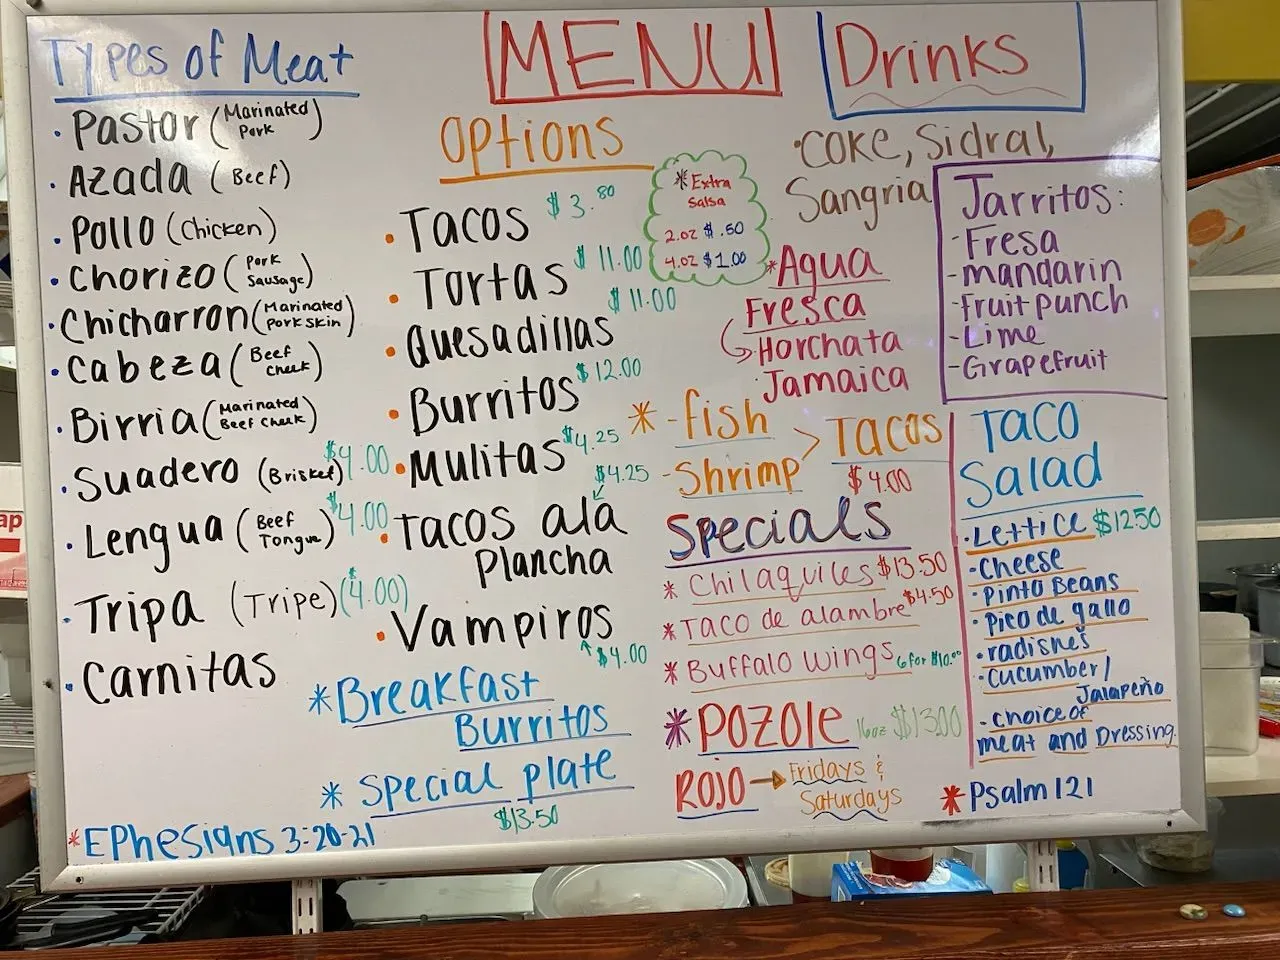 MENU
Types of Meat
• Pastor (Marinated Pork)
• Azada (Beef)
• Pollo (Chicken)
• Chorizo (Pork Sausage)
• Chicharron (Marinated Pork Skin)
• Cabeza (Beef Cheek)
• Birria (Marinated Beef Cheek)
• Suadero (Brisket) $4.00
• Lengua (Beef Tongue) $4.00
• Tripa (Tripe) ($4.00)
• Carnitas
*Ephesians 3:20-21
Options
• Tacos $3.80
• Tortas $11.00
• Quesadillas $11.00
• Burritos $12.00
• Mulitas $4.25
• Tacos ala $4.25
Plancha
• Vampiros
$4.00
*Breakfast
Burritos
* Special plate
$13.50
* Extra
Salsa
2.oz $.50
4.oz $1.00
Drinks
• Coke, Sidral,
Sangria
Jarritos:
- Fresa
- mandarin
- Fruit punch
- Lime
- Grapefruit
*Agua
Fresca
Horchata
Jamaica
* - fish
- Shrimp > Tacos
$4.00
Specials
* Chilaquiles $13.50
* Taco de alambre $4.50
* Buffalo wings 6 for $10.00
* Pozole 16oz $13.00
Rojo → Fridays &
Saturdays
Taco
Salad
• Lettice $12.50
• Cheese
• Pinto Beans
• pico de gallo
• radishes
• cucumber/
Jalapeño
- choice of
meat and Dressing.
* Psalm 121